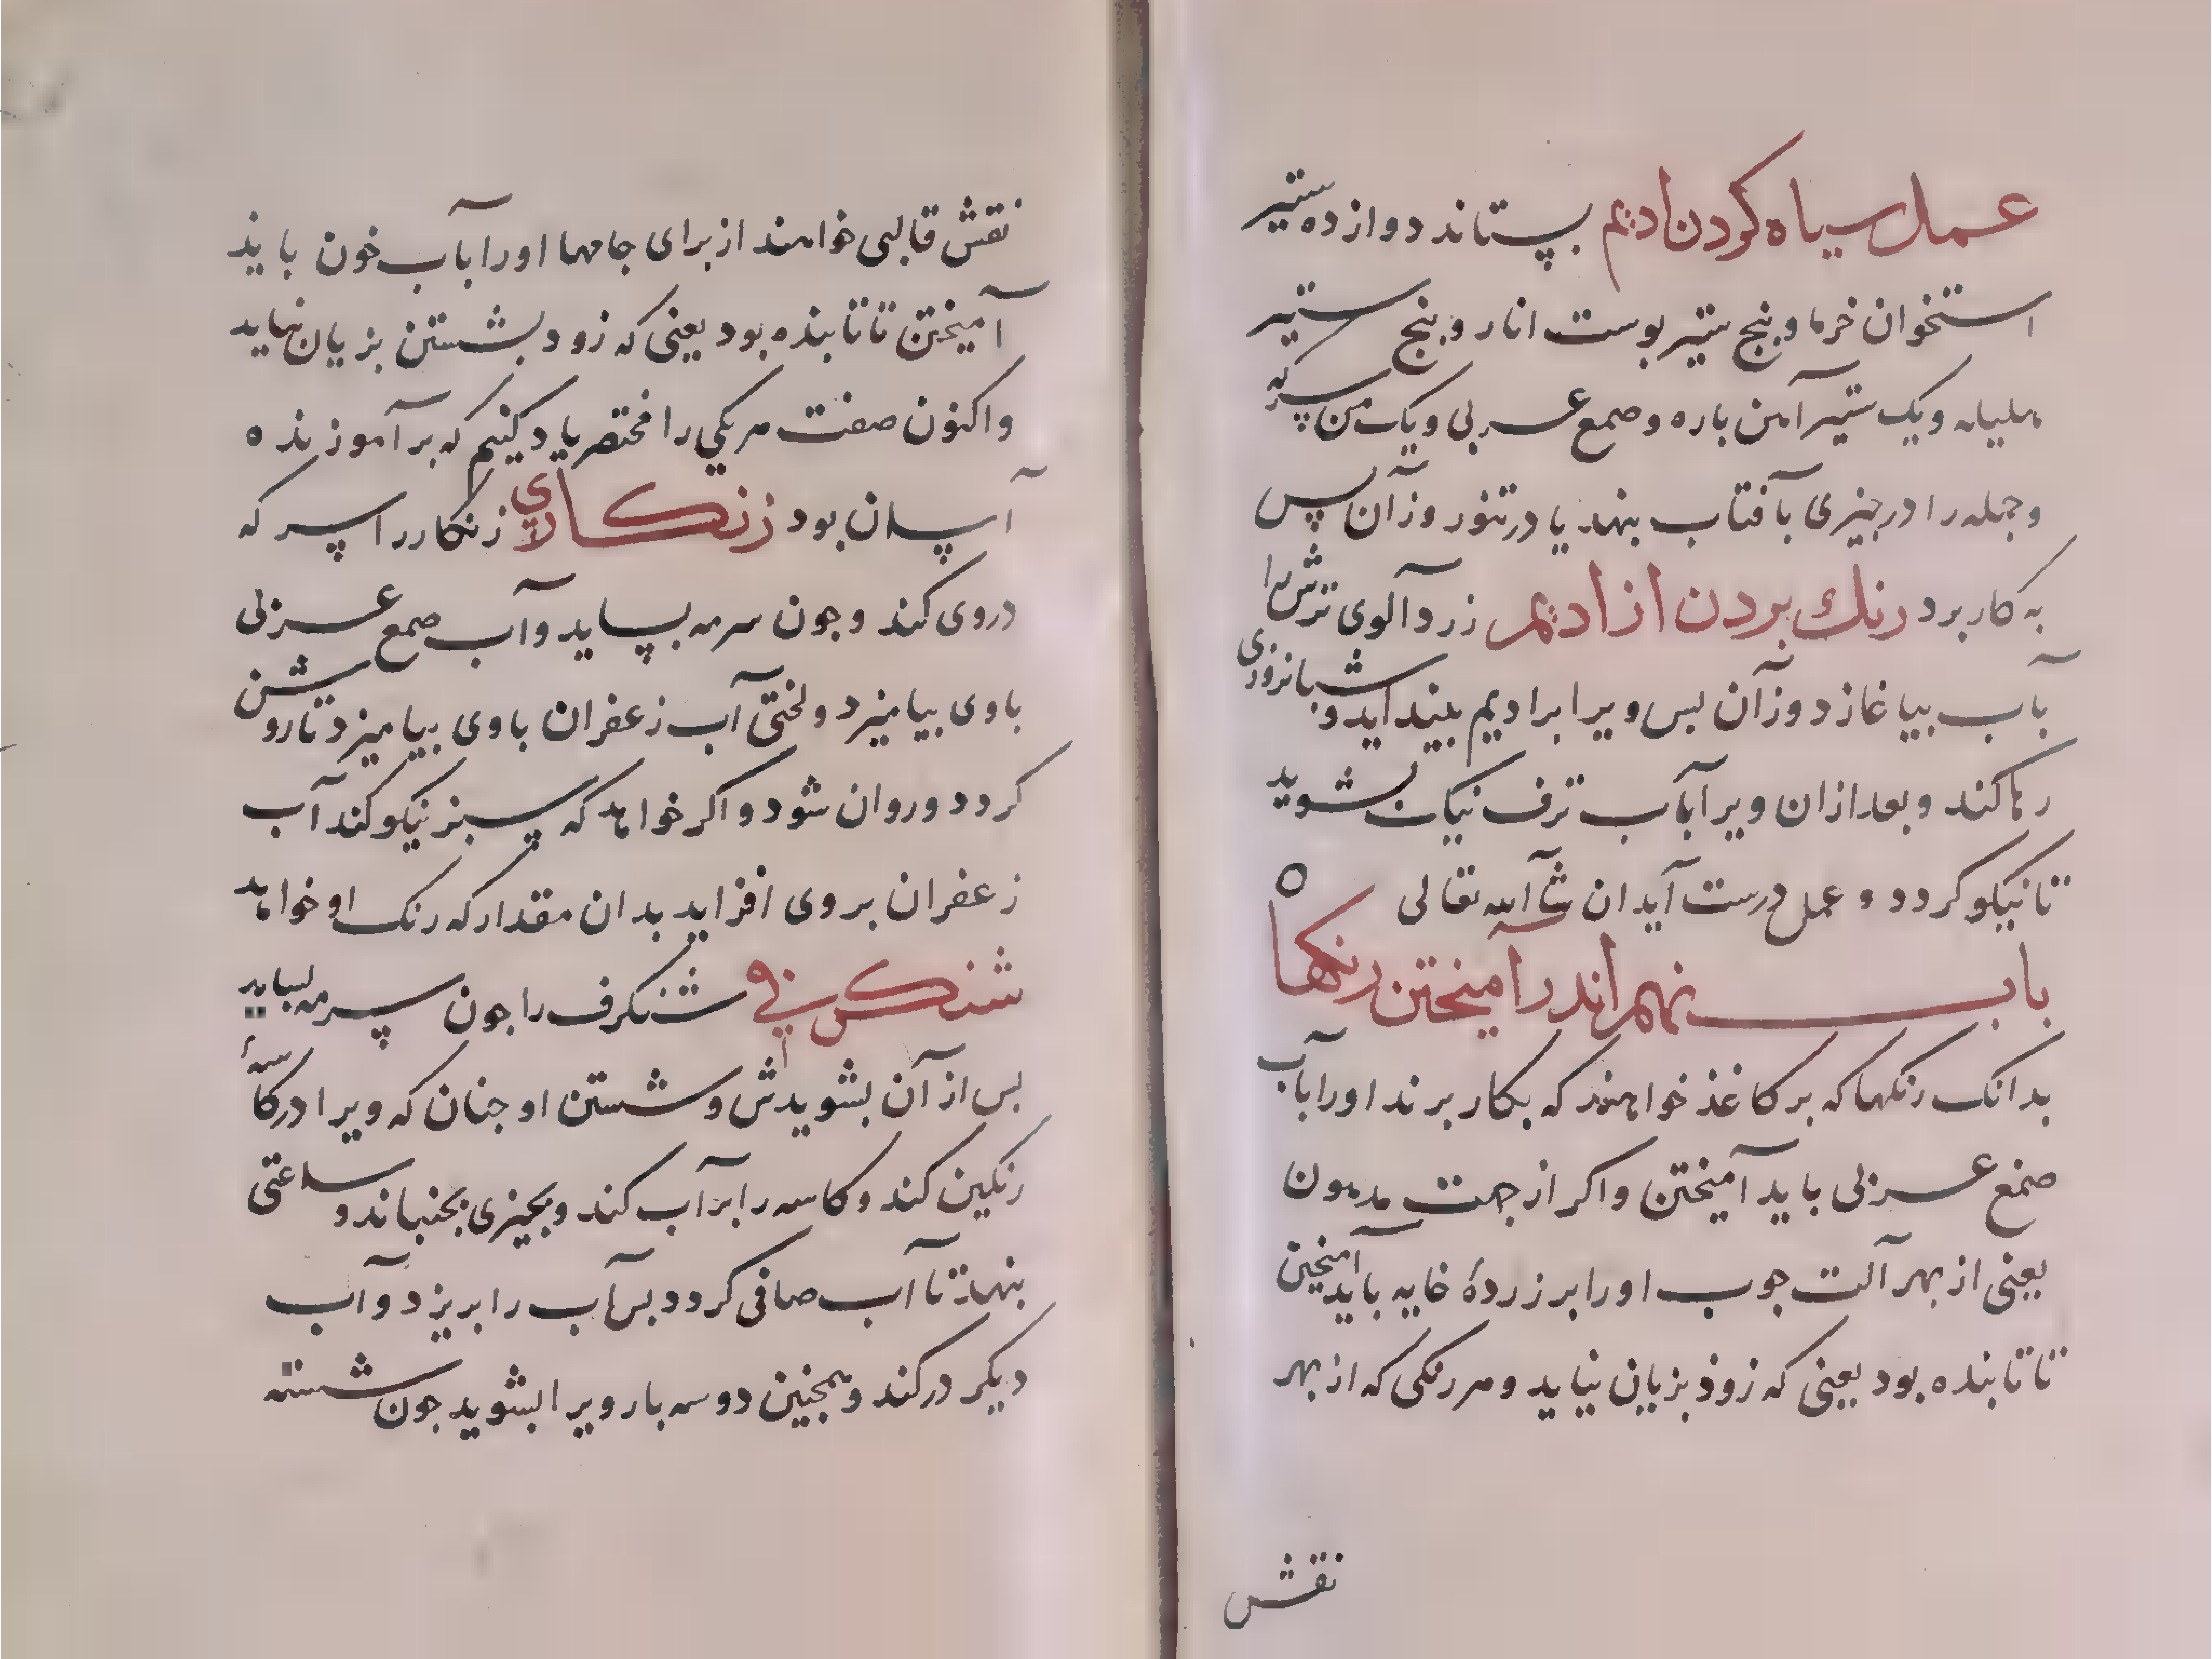 عمل سیاه کردن ادیم بستاند دوازده ستیر
استخوان خرما و بنج ستیر بوست انار و بنج ستیر
هلیله و یک ستیر آهن باره و صمع عربی و یک من سرکه
و جمله را در جیزی بآفتاب بنهد یا در تنور وزآن پس
به کار برد رنک بردن از ادیم زردآلوی ترش را
بآب بیاغازد وزآن بس ویرا بر ادیم بینداید و شبانروزی
رها کند و بعد ازان ویرا بآب ترف نیک بشوید
تا نیکو کردد و عمل درست آید ان شآ الله تعالی
باب نهم اندر آمیختن رنکها
بدانک رنکها که بر کاغذ خواهند که بکار برند اورا بآب
صمغ عربی باید آمیختن و اکر از جهت مدهون
یعنی از بهر آلت جوب اورا بر زردهٔ خایه باید آمیختن
تا تابنده بود یعنی که زوذ بزیان نیاید و هر رنکی که از بهر
نقش
نقش قالبی خواهند از برای جامها اورا بآب خون بایذ
آمیختن تا تابنده بود یعنی که زود بشستن بزیان نیاید
واکنون صفت هر یکی را مختصر یاد کنیم که بر آموزنده
آسان بود زنکاری زنکار را سرکه
در وی کند و جون سرمه بساید و آب صمع عربی
باوی بیامیزد و لختی آب زعفران باوی بیامیزد تا روشن
کردد و روان شود و اکر خواهد که سبز نیکو کند آب
زعفران بروی افزاید بدان مقدار که رنک او خواهد
شنکرفی شنکرف را جون سرمه بساید
بس از آن بشویدش و شستن او جنان که ویرا در کاسهٔ
رنکین کند و کاسه را برآب کند و بجیزی بجنباند و ساعتی
بنهد تا آب صافی کردد بس آب را بریزد و آب
دیکر در کند و همجنین دو سه بار ویرا بشوید جون شسته